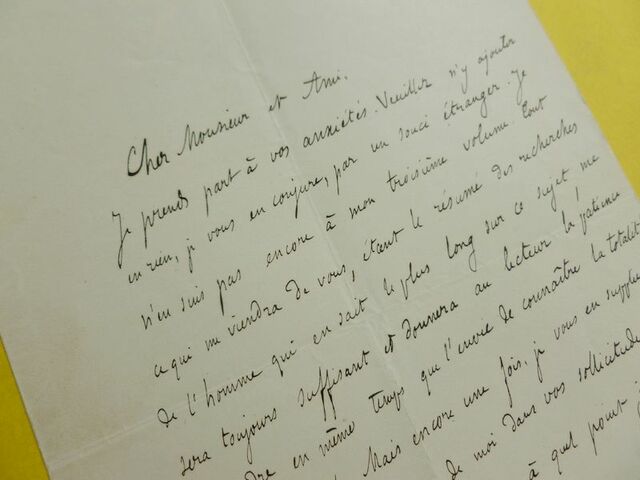 Cher Monsieur et Ami.
Je prends part à vos anxiétés. Veuillez n'y ajouter
en rien, je vous en conjure, par un souci étranger. Je
n'en suis pas encore à mon troisième volume. Tout
ce qui me viendra de vous, étant le résumé des recherches
de l'homme qui en sait le plus long sur ce sujet, me
sera toujours suffisant et donnera au lecteur la patience
dre en même temps que l'envie de connaître la totalit
Mais encore une fois, je vous en supplie
de moi dans vos sollicitude
à quel point j